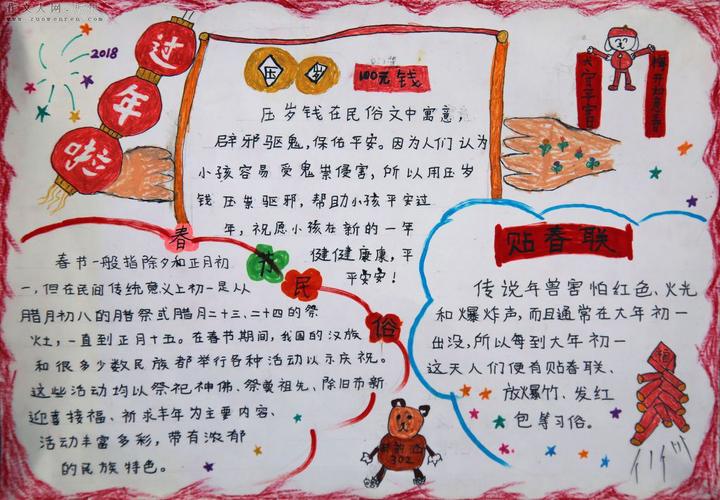 www.zuowenren.com
2018
过
年
啦
压 岁 100元钱
压岁钱在民俗文中寓意，
辟邪驱鬼，保佑平安。因为人们认为
小孩容易受鬼祟侵害，所以用压岁
钱压祟驱邪，帮助小孩平安过
年，祝愿小孩在新的一年
健健康康，平
平安安！
春节民俗
春节一般指除夕和正月初
一，但在民间传统意义上初一是从
腊月初八的腊祭或腊月二十三、二十四的祭
灶，一直到正月十五。在春节期间，我国的汉族
和很多少数民族都举行各种活动以示庆祝。
这些活动均以祭祀神佛、祭奠祖先、除旧布新
迎喜接福、祈求丰年为主要内容、
活动丰富多彩，带有浓郁
的民族特色。
贴春联
传说年兽害怕红色、火光
和爆炸声，而且通常在大年初一
出没，所以每到大年初一
这天人们便有贴春联、
放爆竹、发红
包等习俗。
302